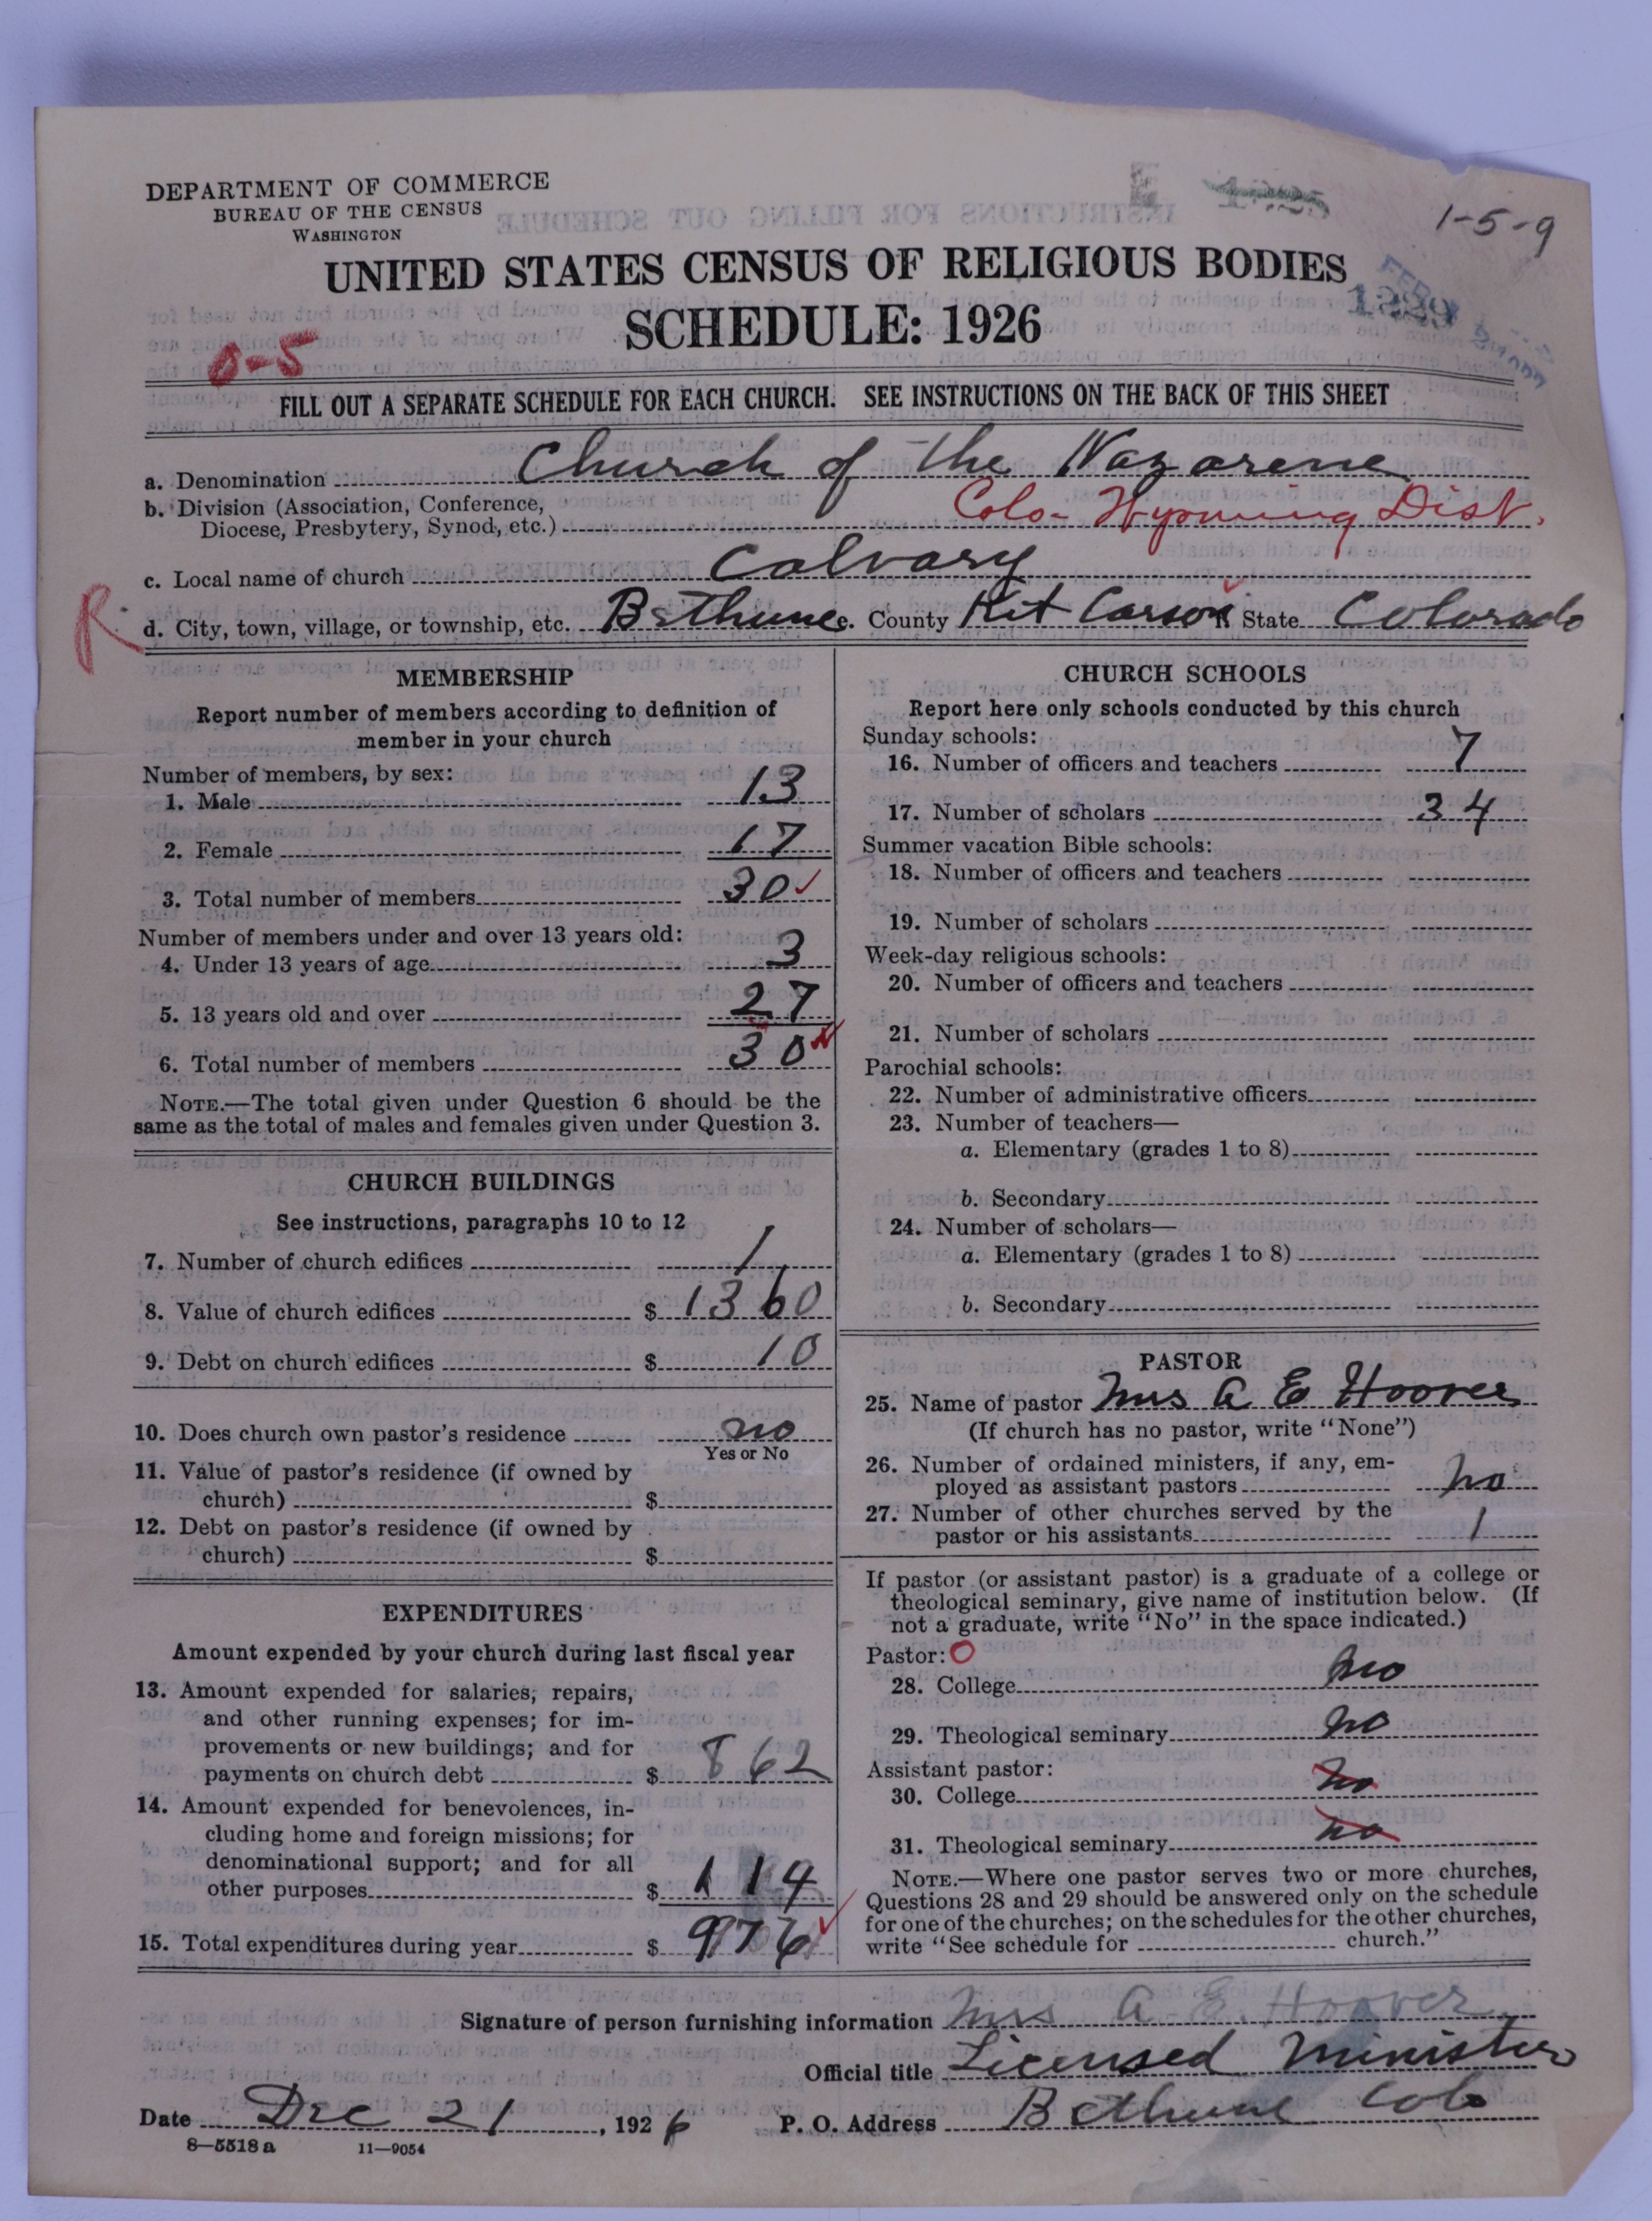 DEPARTMENT OF COMMERCE
BUREAU OF THE CENSUS
WASHINGTON
1-5-9
UNITED STATES CENSUS OF RELIGIOUS BODIES
SCHEDULE: 1926
0-5
FILL OUT A SEPARATE SCHEDULE FOR EACH CHURCH. SEE INSTRUCTIONS ON THE BACK OF THIS SHEET
a. Denomination Church of the Nazarene
b. Division (Association, Conference,
Diocese, Presbytery, Synod, etc.) Colo-Wyoming Dist.
c. Local name of church Calvary
R d. City, town, village, or township, etc. Bethune e. County Kit Carson State Colorado
MEMBERSHIP
Report number of members according to definition of
member in your church
Number of members, by sex:
1. Male 13
2. Female 17
3. Total number of members 30
Number of members under and over 13 years old:
4. Under 13 years of age 3
5. 13 years old and over 27
6. Total number of members 30
NOTE.—The total given under Question 6 should be the
same as the total of males and females given under Question 3.
CHURCH BUILDINGS
See instructions, paragraphs 10 to 12
7. Number of church edifices 1
8. Value of church edifices $ 1360
9. Debt on church edifices $ 10
10. Does church own pastor's residence no
Yes or No
11. Value of pastor's residence (if owned by
church) $
12. Debt on pastor's residence (if owned by
church) $
EXPENDITURES
Amount expended by your church during last fiscal year
13. Amount expended for salaries, repairs,
and other running expenses; for im-
provements or new buildings; and for
payments on church debt $ 862
14. Amount expended for benevolences, in-
cluding home and foreign missions; for
denominational support; and for all
other purposes $ 114
15. Total expenditures during year $ 976
CHURCH SCHOOLS
Report here only schools conducted by this church
Sunday schools:
16. Number of officers and teachers 7
17. Number of scholars 34
Summer vacation Bible schools:
18. Number of officers and teachers
19. Number of scholars
Week-day religious schools:
20. Number of officers and teachers
21. Number of scholars
Parochial schools:
22. Number of administrative officers
23. Number of teachers—
a. Elementary (grades 1 to 8)
b. Secondary
24. Number of scholars—
a. Elementary (grades 1 to 8)
b. Secondary
PASTOR
25. Name of pastor Mrs A E Hoover
(If church has no pastor, write "None")
26. Number of ordained ministers, if any, em-
ployed as assistant pastors no
27. Number of other churches served by the
pastor or his assistants 1
If pastor (or assistant pastor) is a graduate of a college or
theological seminary, give name of institution below. (If
not a graduate, write "No" in the space indicated.)
Pastor: O
28. College no
29. Theological seminary no
Assistant pastor:
30. College no
31. Theological seminary no
NOTE.—Where one pastor serves two or more churches,
Questions 28 and 29 should be answered only on the schedule
for one of the churches; on the schedules for the other churches,
write "See schedule for church."
Signature of person furnishing information Mrs A. E. Hoover
Official title Licensed Minister
Date Dec 21, 1926 P. O. Address Bethune Colo
8—5518a 11—9054